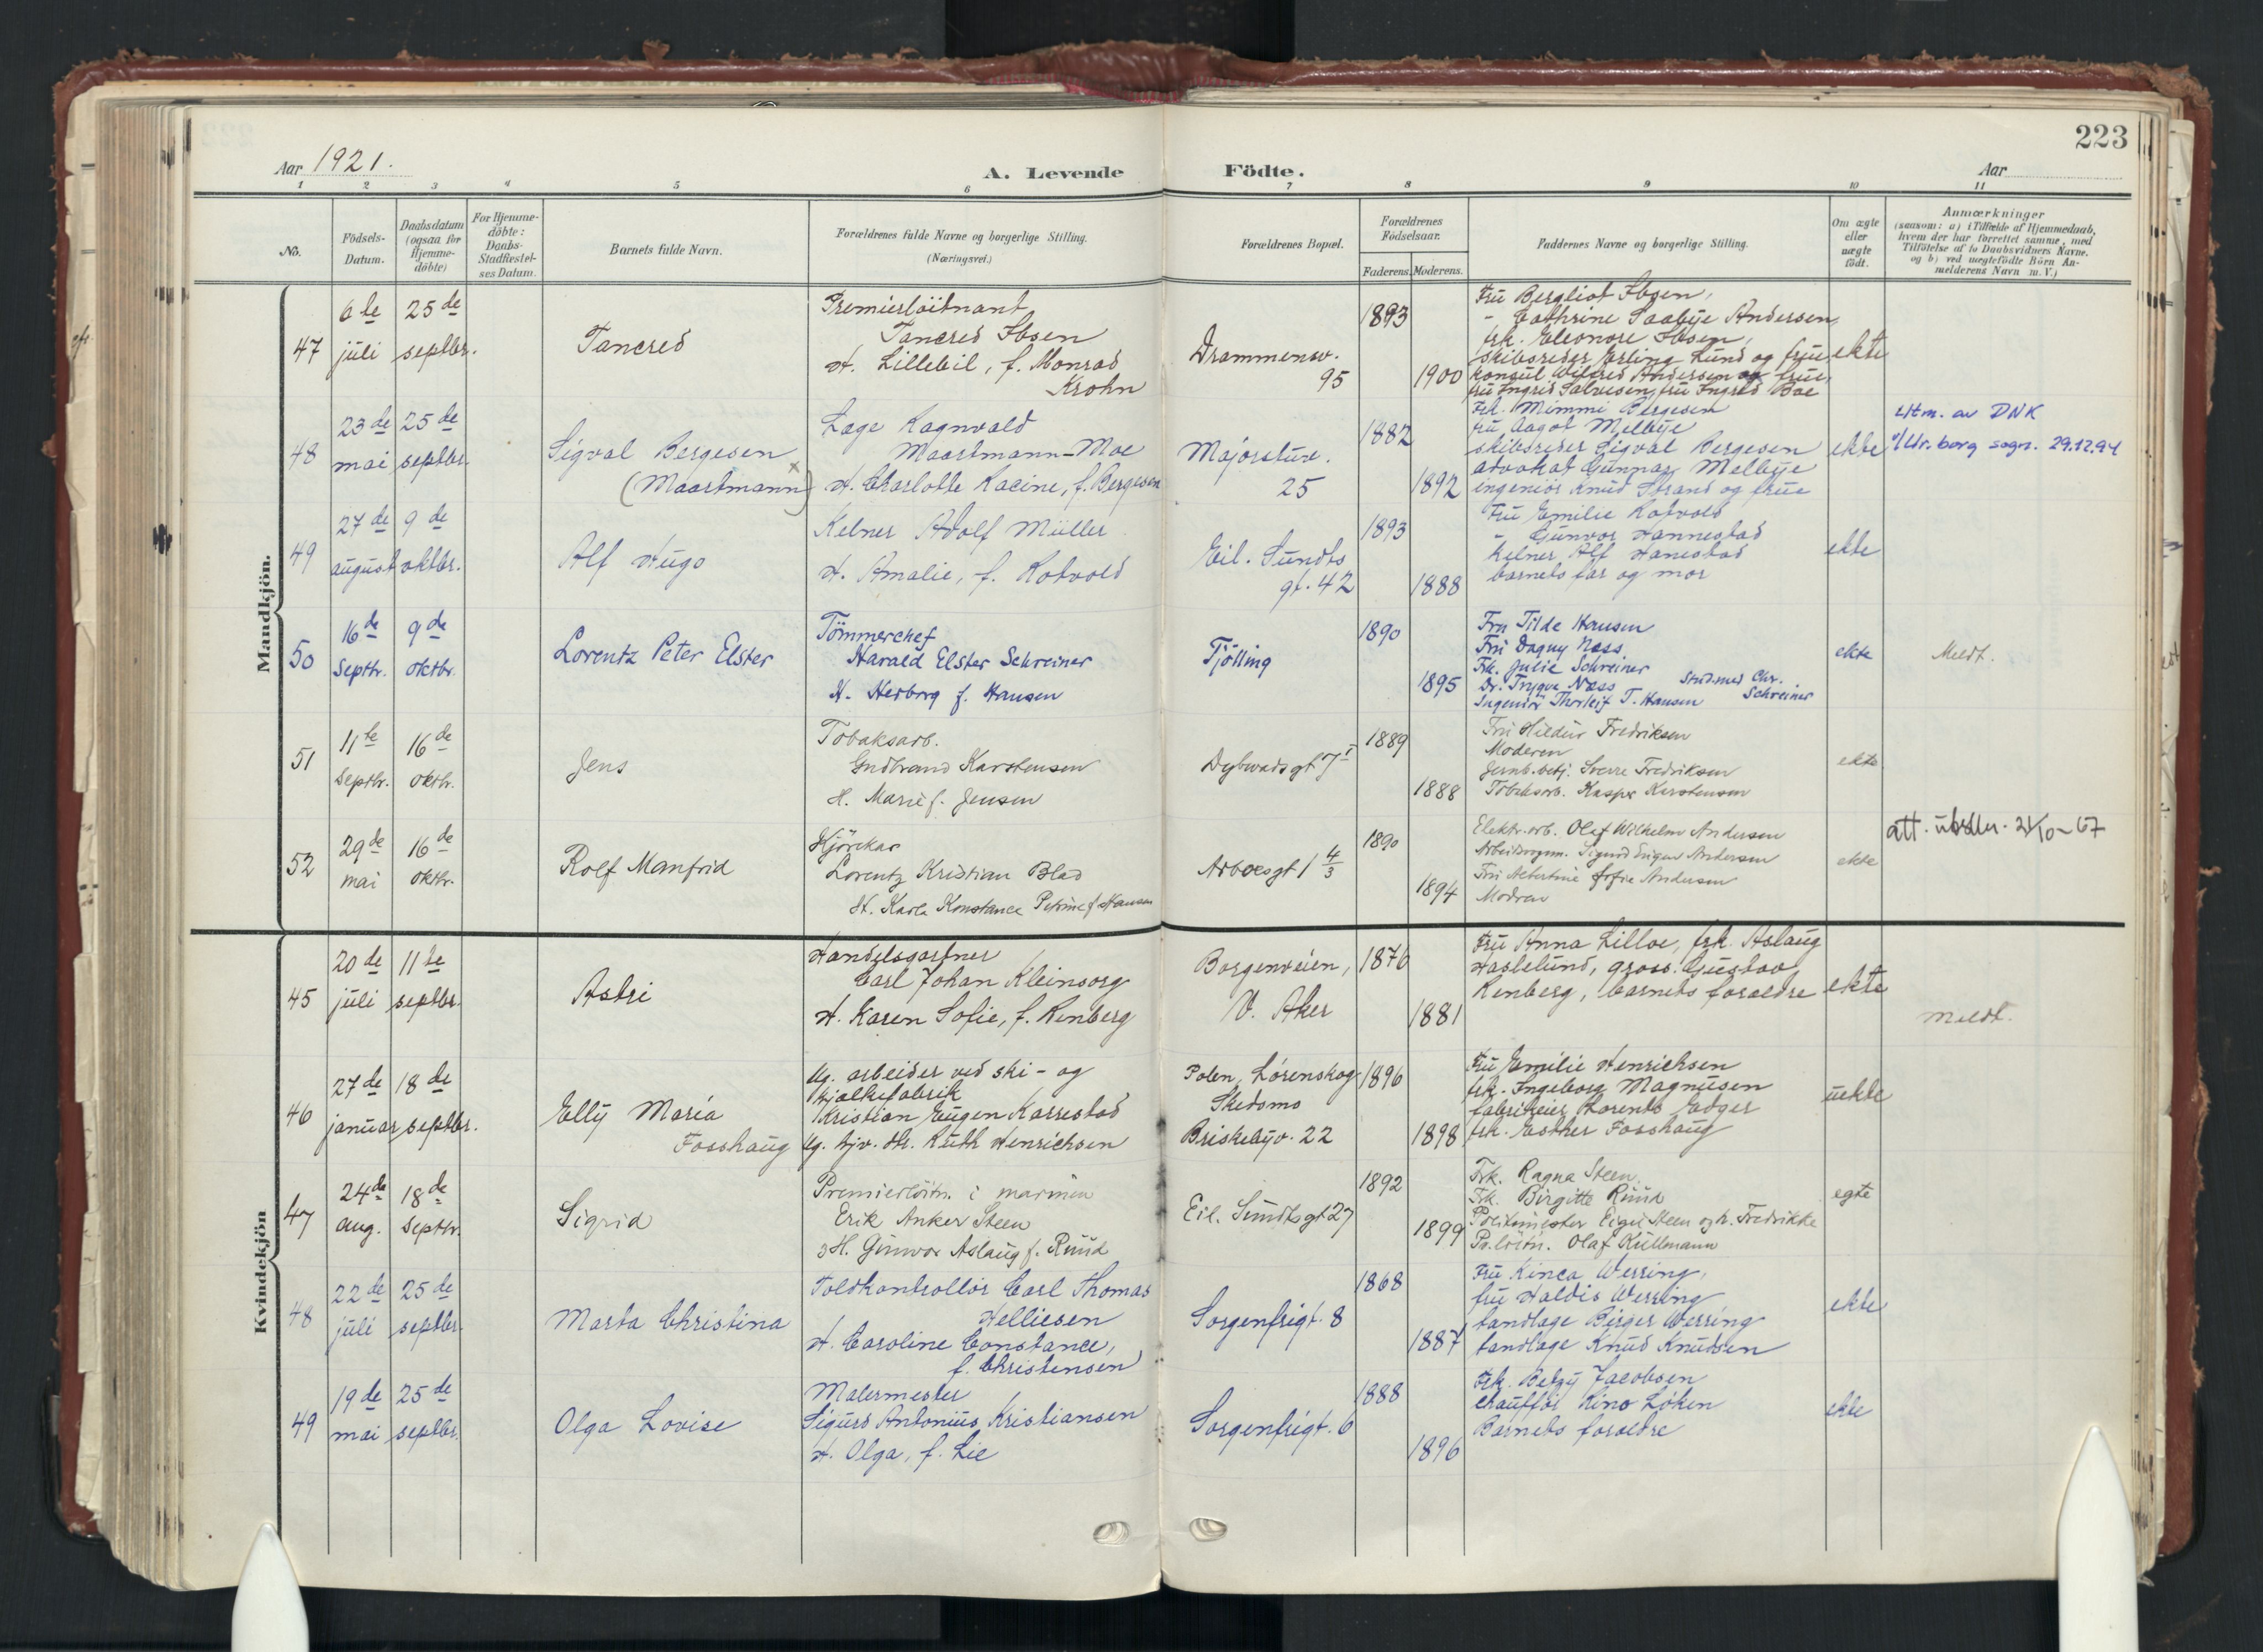 223
Aar 1921.
A. Levende Födte.
Aar
1 2 3 4 5 6 7 8 9 10 11
No.
Födsels-
Datum.
Daabsdatum
(ogsaa for
Hjemme-
döbte)
For Hjemme-
döbte:
Daabs-
Stadfæstel-
ses Datum.
Barnets fulde Navn.
Forældrenes fulde Navne og borgerlige Stilling.
(Næringsvei.)
Forældrenes Bopæl.
Forældrenes
Födselsaar.
Faderens. Moderens.
Faddernes Navne og borgerlige Stilling.
Om ægte
eller
uægte
födt.
Anmærkninger
(saasom: a) i Tilfælde af Hjemmedaab,
hvem der har forrettet samme, med
Tilföielse af to Daabsvidners Navne.
og b) ved uægtefödte Börn An-
melderens Navn m. V.)
Mandkjön.
47
6te juli
25de septbr.
Tancred
Premierlöitnant
Tancred Ibsen
H. Lillebil, f. Monrad
Krohn
Drammensv.
95
1893
1900
Fru Bergliot Ibsen,
" Cathrine Saabye Andersen,
frk. Eleonore Ibsen,
skibsreder Erling Lund og frue
konsul Wilfred Andersen og frue,
fru Ingrid Salvesen, fru Ingrid Boe
ekte
48
23de mai
25de septbr.
Sigval Bergesen
(Maartmann)
Læge Ragnvald
Maartmann-Moe
H. Charlotte Racine, f. Bergesen
Majorstuv.
25
1882
1892
Frk. Mimmi Bergesen
fru Aagot Melbye
skibsreder Sigval Bergesen
advokat Gunnar Melbye
ingeniör Knud Strand og frue
ekte
Utm. av DNK
Ur.borg sogn. 29.12.94
49
27de august
9de oktbr.
Alf Hugo
Kelner Adolf Müller
H. Amalie, f. Rotvold
Eil. Sundts
gt. 42
1893
1888
Fru Emilie Rotvold
" Gunvor Hannestad
kelner Alf Hanestad
barnets far og mor
ekte
50
16de Septbr.
9de oktbr.
Lorentz Peter Elster
Tömmerchef
Harald Elster Schreiner
H. Herborg f. Hansen
Tjölling
1890
1895
Fru Tilde Hansen
Fru Dagny Næss
Frk. Julie Schreiner
Dr. Trygve Næss Stud.med Chr.
Ingeniör Thorleif T. Hansen Schreiner
ekte
Meldt.
51
11te Septbr.
16de oktbr.
Jens
Tobaksarb.
Gudbrand Karstensen
H. Marie f. Jensen
Dybwadsgt 7 I
1889
1888
Fru Hildur Fredriksen
Moderen
Jernb.betj. Sverre Fredriksen
Tobaksarb. Kasper Karstensen
ekte
52
29de mai
16de oktbr.
Rolf Manfrid
Kjörekar
Lorentz Kristian Blad
H. Karla Konstance Petrine f Hansen
Arboesgt 1 4/3
1890
1894
Elektr.arb. Olaf Wilhelm Andersen
Sigurd Eugen Andersen
Fru Albertine Sofie Andersen
Modren
ekte
att. 21/10-67
Kvindekjön
45
20de juli
11te septbr.
Astri
Handelsgartner
Carl Johan Kleinsorg
H. Karen Sofie, f. Renberg
Borgenveien,
V. Aker
1876
1881
Fru Anna Lilloe, frk. Aslaug
Haslelund, gross. Gustav
Renberg, barnets foreldre
ekte
Meldt.
46
27de januar
18de septbr.
Elly Maria
Fosshaug
Ug. arbeider ved ski- og
kjælkefabrik
Kristian Eugen Karrestad
Ug. hjv. dtr. Ruth Henrichsen
Polen, Lørenskog
Skedsmo
Briskebyv. 22
1896
1898
Fru Emilie Henrichsen
frk. Ingeborg Magnusen
fabrikeier Lorents Edger
frk. Esther Fosshaug
uekte
47
24de aug.
18de Septbr.
Sigrid
Premierlöitn. i marinen
Erik Anker Steen
H. Gunvor Aslaug f. Ruud
Eil. Sundtsgt 27
1892
1899
Frk. Ragna Steen
Frk. Birgitte Ruud
Politimester Eigil Steen og h. Fredrikke
Pr.löitn. Olaf Kullmann
egte
48
22de juli
25de septbr.
Marta Christina
Toldkontrollör Carl Thomas
Helliesen
H. Caroline Constance,
f. Christensen
Sorgenfrigt. 8
1868
1887
Fru Kinca Werring,
fru Haldis Werring
tandlæge Birger Werring
tandlæge Knud Knudsen
ekte
49
19de mai
25de septbr.
Olga Lovise
Malermester
Sigurd Antonius Kristiansen
H. Olga, f. Lie
Sorgenfrigt. 6
1888
1896
Frk. Betzy Jacobsen
chauffør Rino Løken
Barnets foreldre
ekte